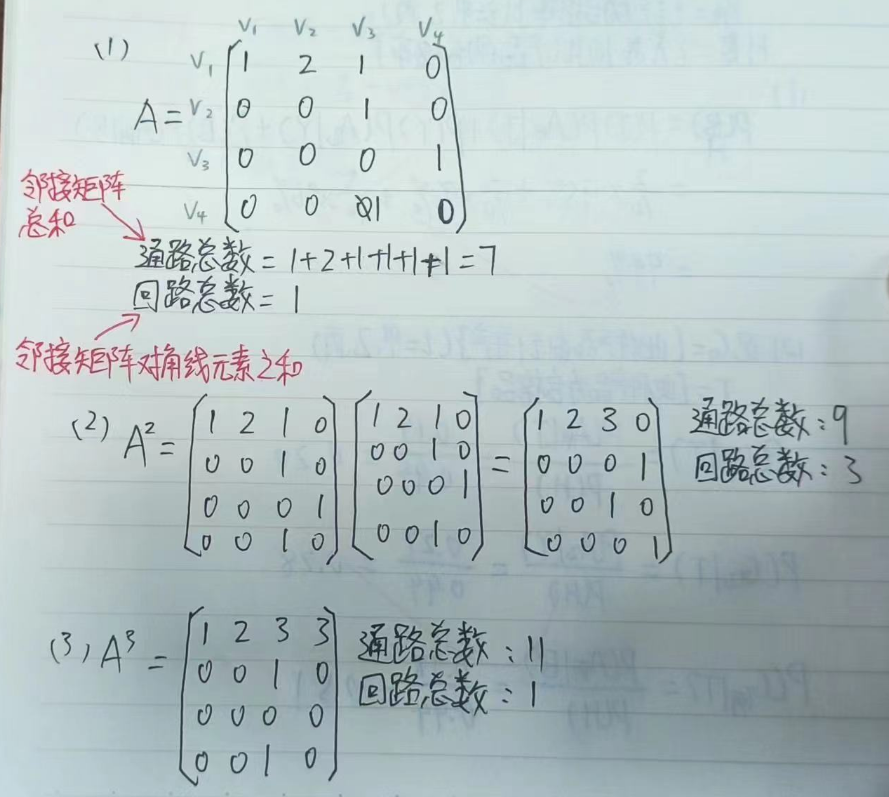 (1)
V1 V2 V3 V4
V1 1 2 1 0
A= V2 0 0 1 0
V3 0 0 0 1
V4 0 0 1 0
邻接矩阵
总和
通路总数=1+2+1+1+1+1=7
回路总数=1
邻接矩阵对角线元素之和
(2) A²= [1 2 1 0] [1 2 1 0] = [1 2 3 0] 通路总数:9
0 0 1 0 0 0 1 0 0 0 0 1 回路总数:3
0 0 0 1 0 0 0 1 0 0 1 0
0 0 1 0 0 0 1 0 0 0 0 1
(3) A³= [1 2 3 3] 通路总数:11
0 0 1 0 回路总数:1
0 0 0 0
0 0 1 0